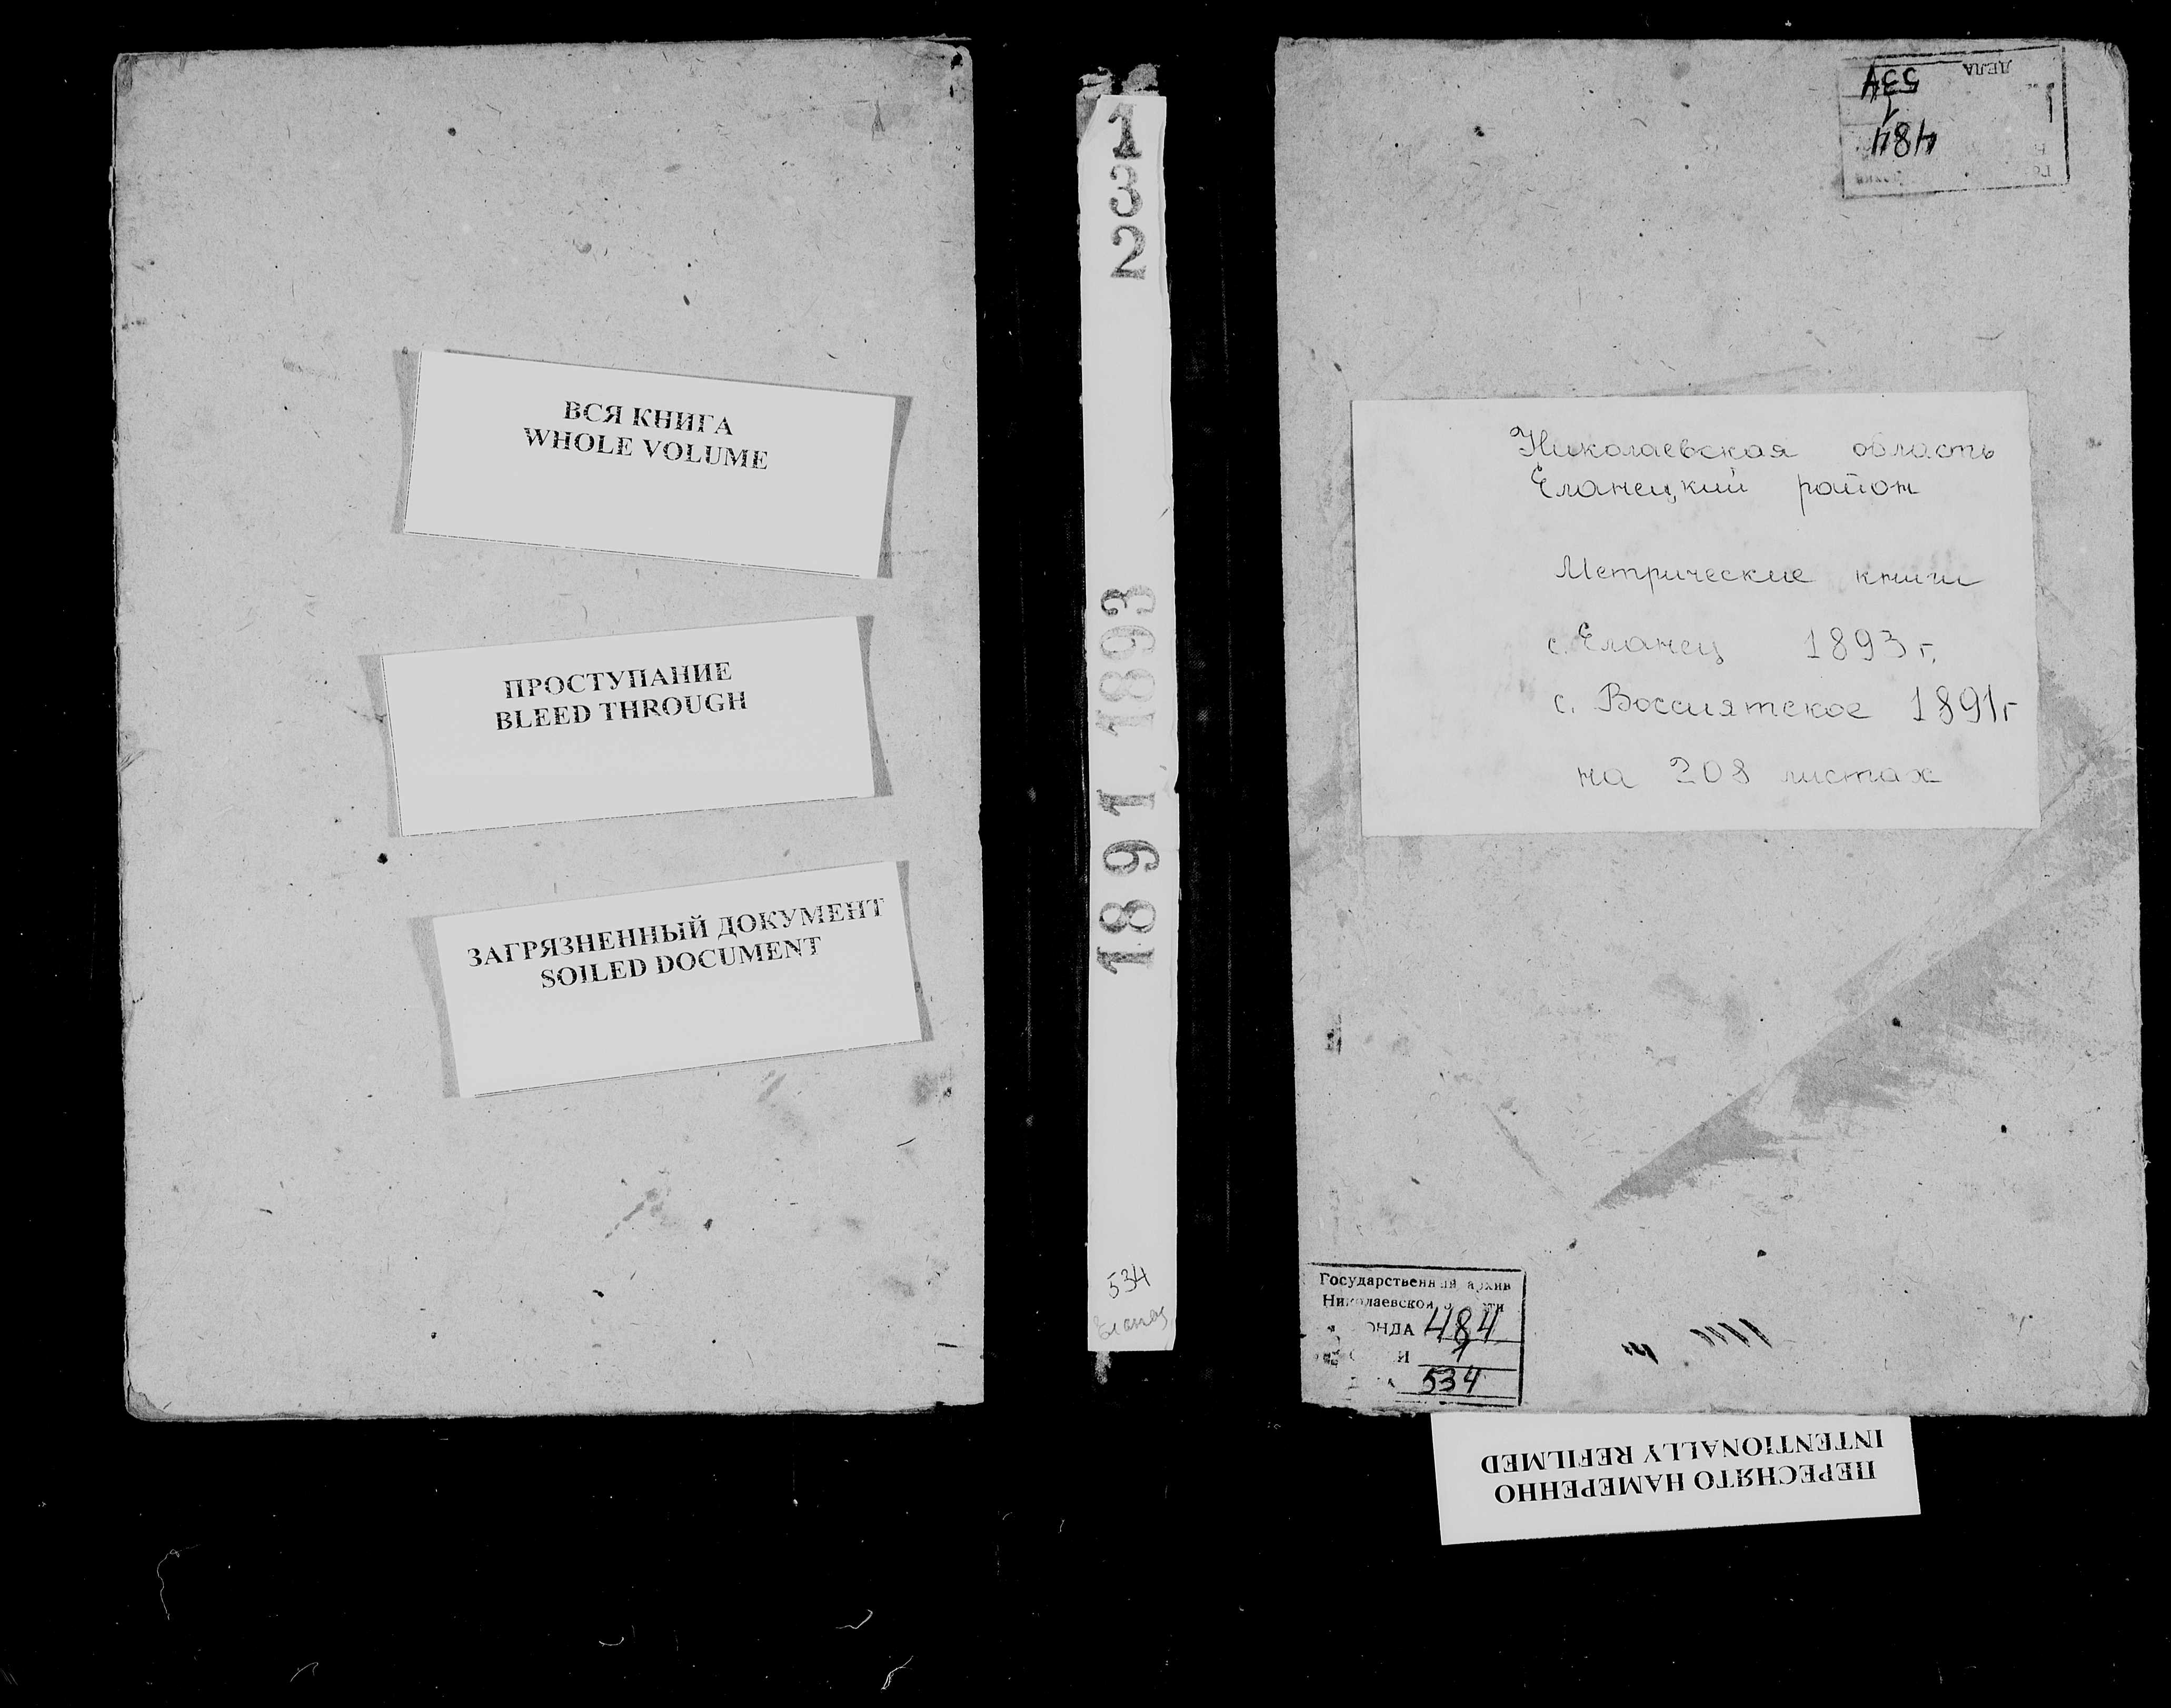 ВСЯ КНИГА
WHOLE VOLUME
ПРОСТУПАНИЕ
BLEED THROUGH
ЗАГРЯЗНЕННЫЙ ДОКУМЕНТ
SOILED DOCUMENT
132
1891 1893
534
Еланец
ДЕЛА 534
1
484
Николаевская область
Еланецкий район
Метрические книги
с. Еланец 1893 г.
с. Воссиятское 1891 г
на 208 листах
Государственный архив
Николаевской
ОНДА 484
И 1
534
ПЕРЕСНЯТО НАМЕРЕННО
INTENTIONALLY REFILMED